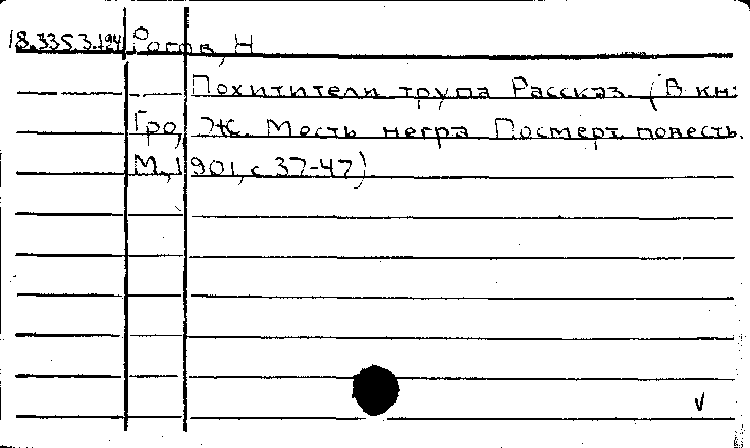 18.335.3.194 Рогов, Н
Похитители трупа Рассказ. (В кн:
Гро, Ж. Месть негра Посмерт. повесть.
М., 1901, с 37-47).
V